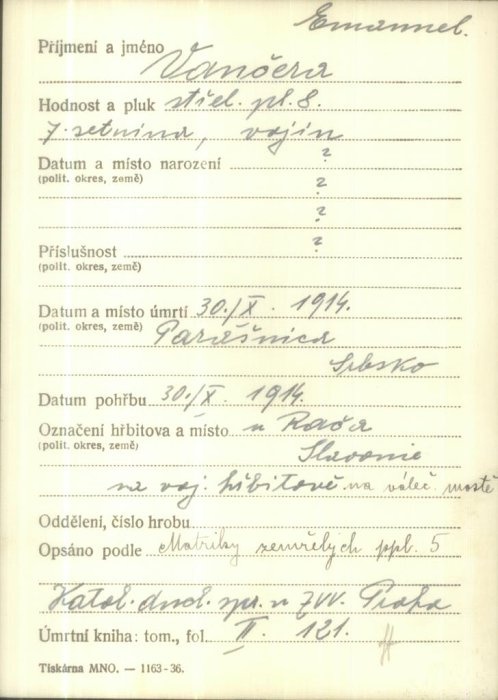 Emanuel.
Příjmení a jméno Vančera
Hodnost a pluk střel. pl. 8.
7. setnina, vojín
Datum a místo narození ?
(polit. okres, země) ?
?
Příslušnost ?
(polit. okres, země)
Datum a místo úmrtí 30./X. 1914.
(polit. okres, země) Parašnica
Srbsko
Datum pohřbu 30./X. 1914.
Označení hřbitova a místo u Rača
(polit. okres, země) Slavonie
na voj. hřbitově na váleč. mostě
Oddělení, číslo hrobu
Opsáno podle Matriky zemřelých ppl. 5
Katol. duch. spr. u ZVV. Praha
Úmrtní kniha: tom., fol. II. 121.
Tiskárna MNO. — 1163-36.